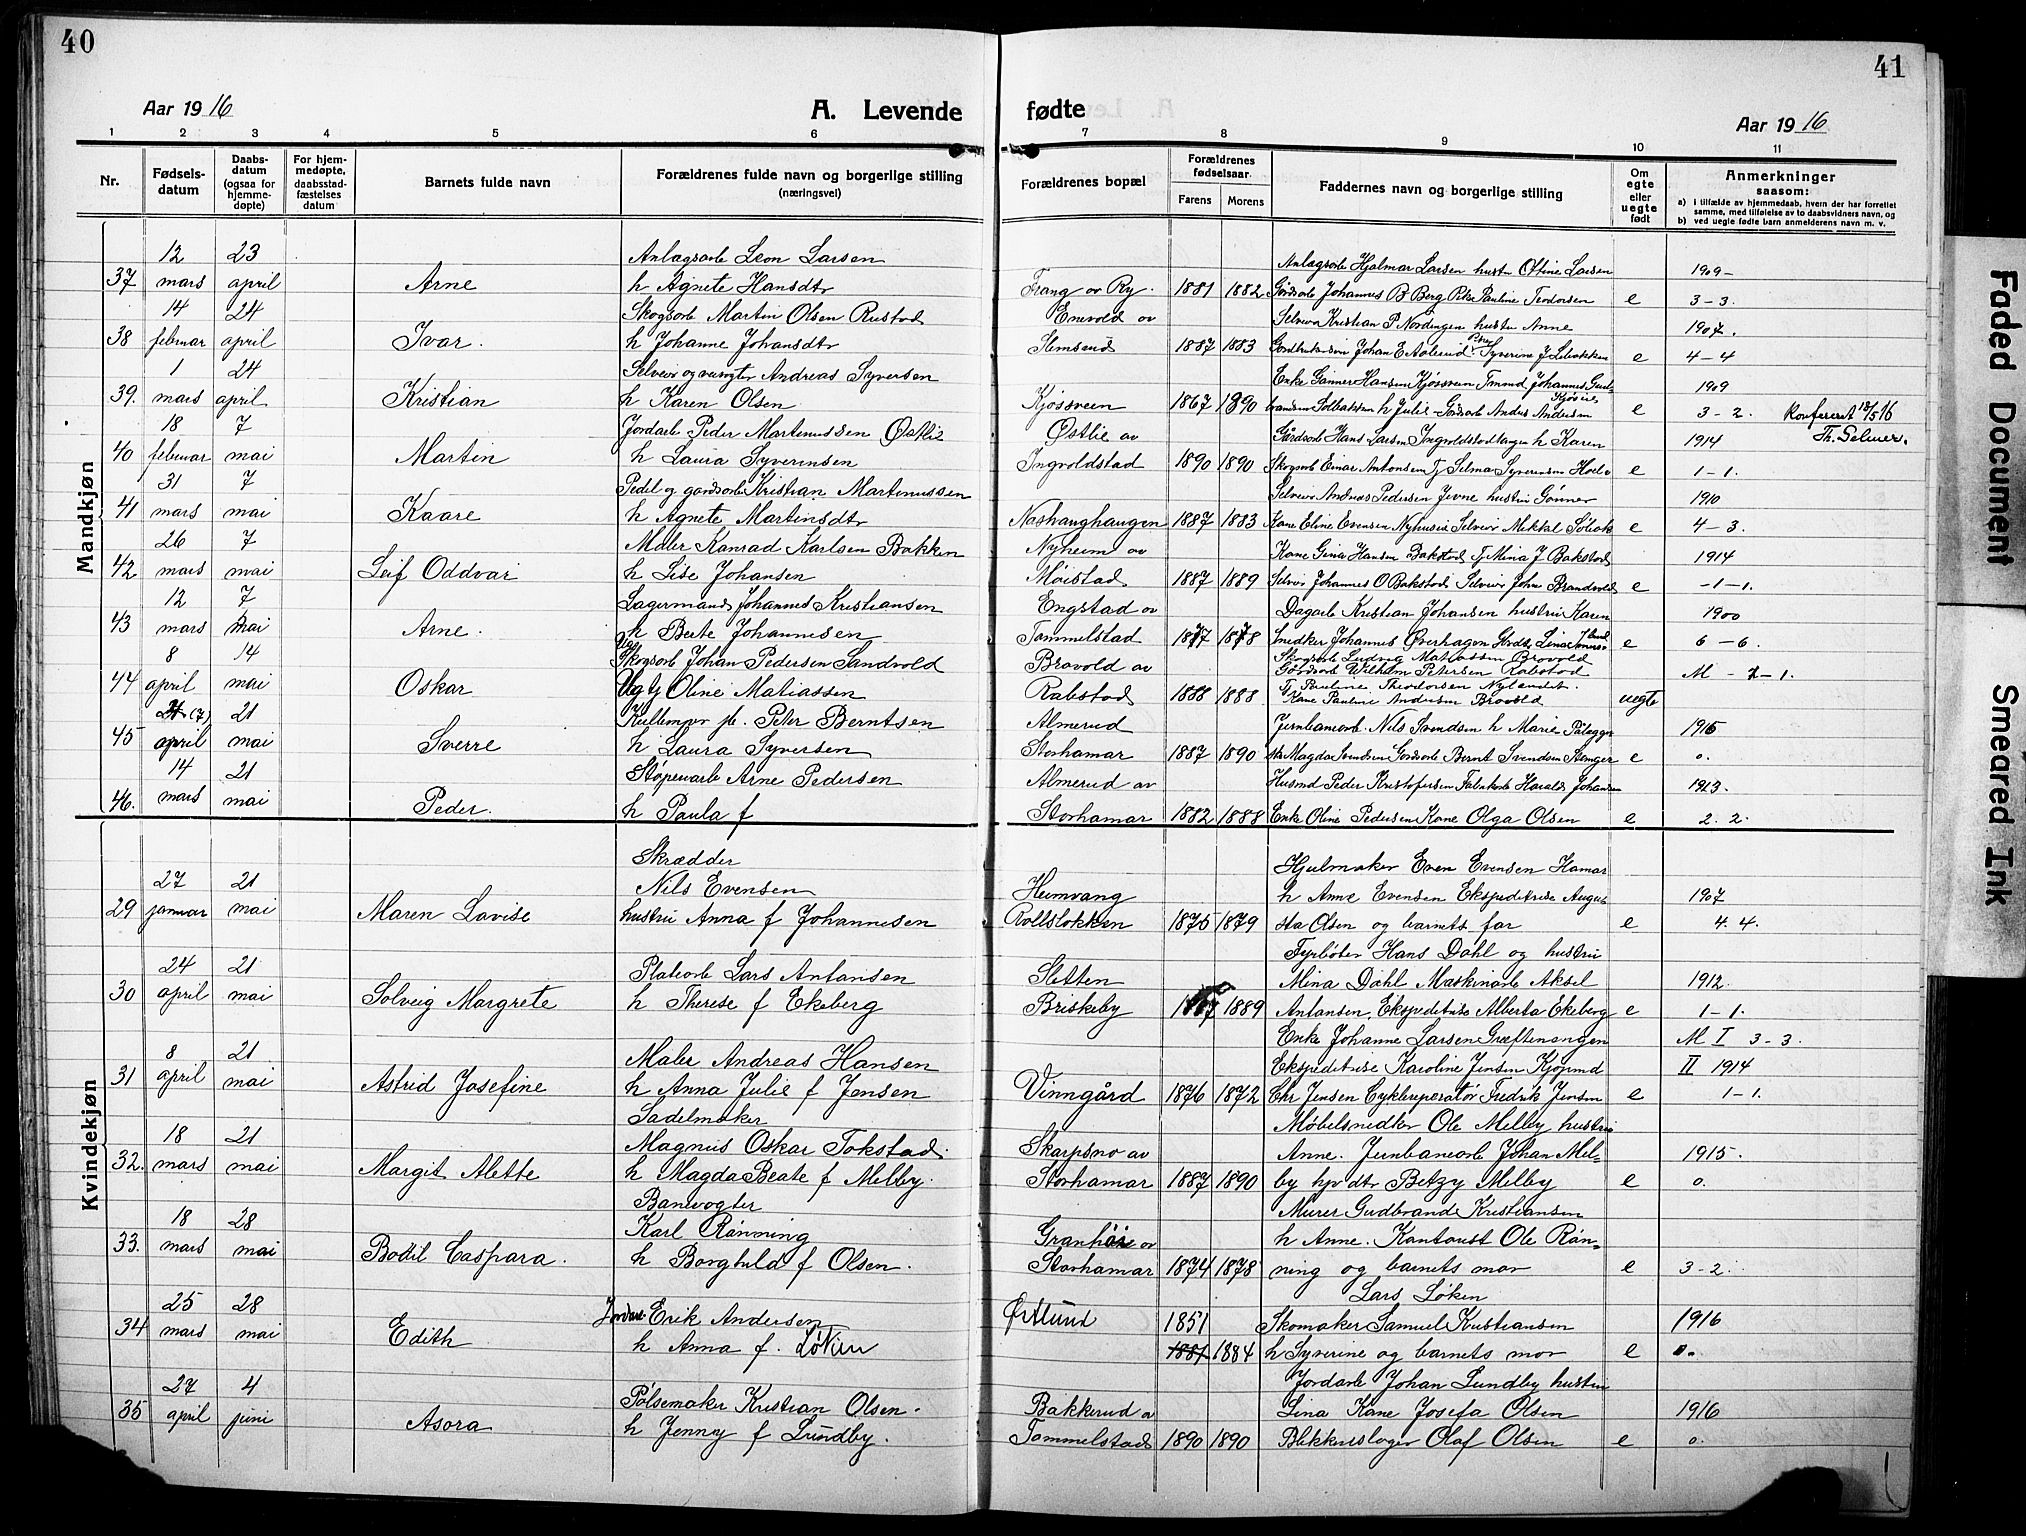 40
Aar 1916
A. Levende
1 2 3 4 5 6
Nr.
Fødsels-
datum
Daabs-
datum
(ogsaa for
hjemme-
døpte)
For hjem-
medøpte,
daabsstad-
fæstelses
datum
Barnets fulde navn
Forældrenes fulde navn og borgerlige stilling
(næringsvei)
Mandkjøn
12 23 Anlægsarb Leon Larsen
37 mars april Arne h Agnete Hansdtr
14 24 Skogsarb Martin Olsen Rustad
38 februar april Ivar. h Johanne Johansdtr
1 24 Selveier og Andreas Syversen
39. mars april Kristian h Karen Olsen
18 7 Jordarb Peder Martinussen Østlie
40 februar mai Martin h Laura Syverinsen
31 7 Pedel og gardsarb Kristian Martinussen
41 mars mai Kaare h Agnete Martinsdtr
26 7 Maler Konrad Karlsen Bakken
42 mars mai Leif Oddvar h Lise Johansen
12 7 Lagermand Johannes Kristiansen
43 mars mai Arne. h Beate Johannesen
8 14 Skogsarb Johan Pedersen Sandvold
44 april mai Oskar Oline Matiassen
(7) 21 Peter Berntsen
45 april mai Sverre h Laura Syversen
14 21 Støperiarb Arne Pedersen
46. mars mai Peder. h Paula f
Kvindekjøn
Skrædder
27 21 Nils Evensen
29 januar mai Maren Lovise hustru Anna f Johannesen
24 21 Platearb Lars Antonsen
30 april mai Solveig Margrete h Therese f Ekeberg
8 21 Maler Andreas Hansen
31 april mai Astrid Josefine h Anna Julie f Jensen
Sadelmaker
18 21 Magnus Oskar Tokstad.
32. mars mai Margit Alette h Magda Beate f Melby.
Banevogter
18 28 Karl Rønning
33. mars mai Bodil Caspara. h Borghild f Olsen.
25 28 Erik Andersen
34 mars mai Edith h Anna f. Løken
27 4 Pølsemaker Kristian Olsen.
35 april juni Asora h Jenny f Lundby.
41
fødte
Aar 1916
7 8 9 10 11
Forældrenes bopæl
Forældrenes
fødselsaar
Farens Morens
Faddernes navn og borgerlige stilling
Om
egte
eller
uegte
født
Anmerkninger
saasom:
a) i tilfælde av hjemmedaab, hvem der har forrettet
samme, med tilføielse av to daabsvidners navn, og
b) ved uegte fødte barn anmelderens navn m. v.
Anlægsarb Hjalmar Larsen hustru Otine Larsen 1909-
Frang av Ry. 1881 1882 Gårdsarb Johannes B Berg Pike Pauline Teodorsen e 3-3.
Enevold av Selveier Kristian P Nordengen hustru Anne 1907.
Slemsrud 1887 1883 Johan E Aalerud Pike Syverine J e 4-4
Enke Gunner Hansen Kjøsveen Johannes 1909
Kjøsveen 1867 1890 Solbakken h Julie Gårdsarb Andres Andersen Kjøsveen e 3-2. Konfereret 18/5 16
Østlie av Gårdsarb Hans Larsen Ingvoldstadhagen h Karen 1914 Th. Selmer.
Ingvoldstad 1890 1890 Skogsarb Einar Antonsen Tj Selma Syverinsen e 1-1.
Selveier Andreas Pedersen Jevne hustru Gunner 1910
Nashaughaugen 1887 1883 Kone Eline Evensen Nyhusen Selveier Mikkel e 4-3.
Nyheim av Kone Gina Hansen Bakstad Tj Mina J Bakstad 1914
Møistad 1887 1889 Selveier Johannes O Bakstad Selveier Johan Brandvold e -1-1.
Engstad av Dagarb Kristian Johansen hustru Karen 1900
Tommelstad 1877 1878 Snedker Johannes Øverhagen e 6-6
Brovold av Skogsarb Ludvig Matiassen Brovold
Gårdsarb Wilhelm Petersen Rabstad M - 2-1.
Rabstad 1888 1888 Tj Pauline Theodorsen Nylandet.
Kone Pauline Andersen Brovold uegte
Almerud Jernbanearb. Nils Svendsen h Marie 1915
Storhamar 1887 1890 Magda Svendsen Gårdsarb Bernt Svendsen e 0.
Almerud av Husmd Peder Kristofersen Fabrikarb Harald Johansen 1913.
Storhamar 1882 1888 Enke Oline Pedersen Kone Olga Olsen e 2. 2.
Hjulmaker Even Evensen Hamar
Heimvang h Anne Evensen Ekspeditrise Augus 1907
Rollsløkken 1875 1879 sta Olsen og barnets far e 4. 4.
Fyrbøter Hans Dahl og hustru
Sletten Mina Dahl Maskinarb Aksel 1912.
Briskeby 1889 Antonsen, Ekspeditrise Alberta Ekeberg e 1-1.
Enke Johanne Larsen Grøftenengen M I 3-3.
Ekspeditrise Karoline Jensen Kjøpmd II 1914
Vinngård 1876 1872 Chr Jensen Cykkelreperatør Fredrik Jensen e 1-1.
Møbelsnedker Ole Melby hustru
Skarpsno av Anne. Jernbanearb Johan Mel= 1915.
Storhamar 1887 1890 by hjv dtr Betzy Melby e 0.
Murer Gudbrand Kristiansen
Granhøi av h Anne. Kantorist Ole Røn=
Storhamar 1874 1878 ning og barnets mor e 3-2.
Lars Løken
Østlund 1851 Skomaker Samuel Kristiansen 1916
1881 1884 h Syverine og barnets mor e 0.
Jordarb Johan Lundby hustru
Bakkerud av Lina Kone Josefa Olsen 1916
Tommelstad 1890 1890 Blikkenslager Olaf Olsen e 0.
Faded Document
Smeared Ink